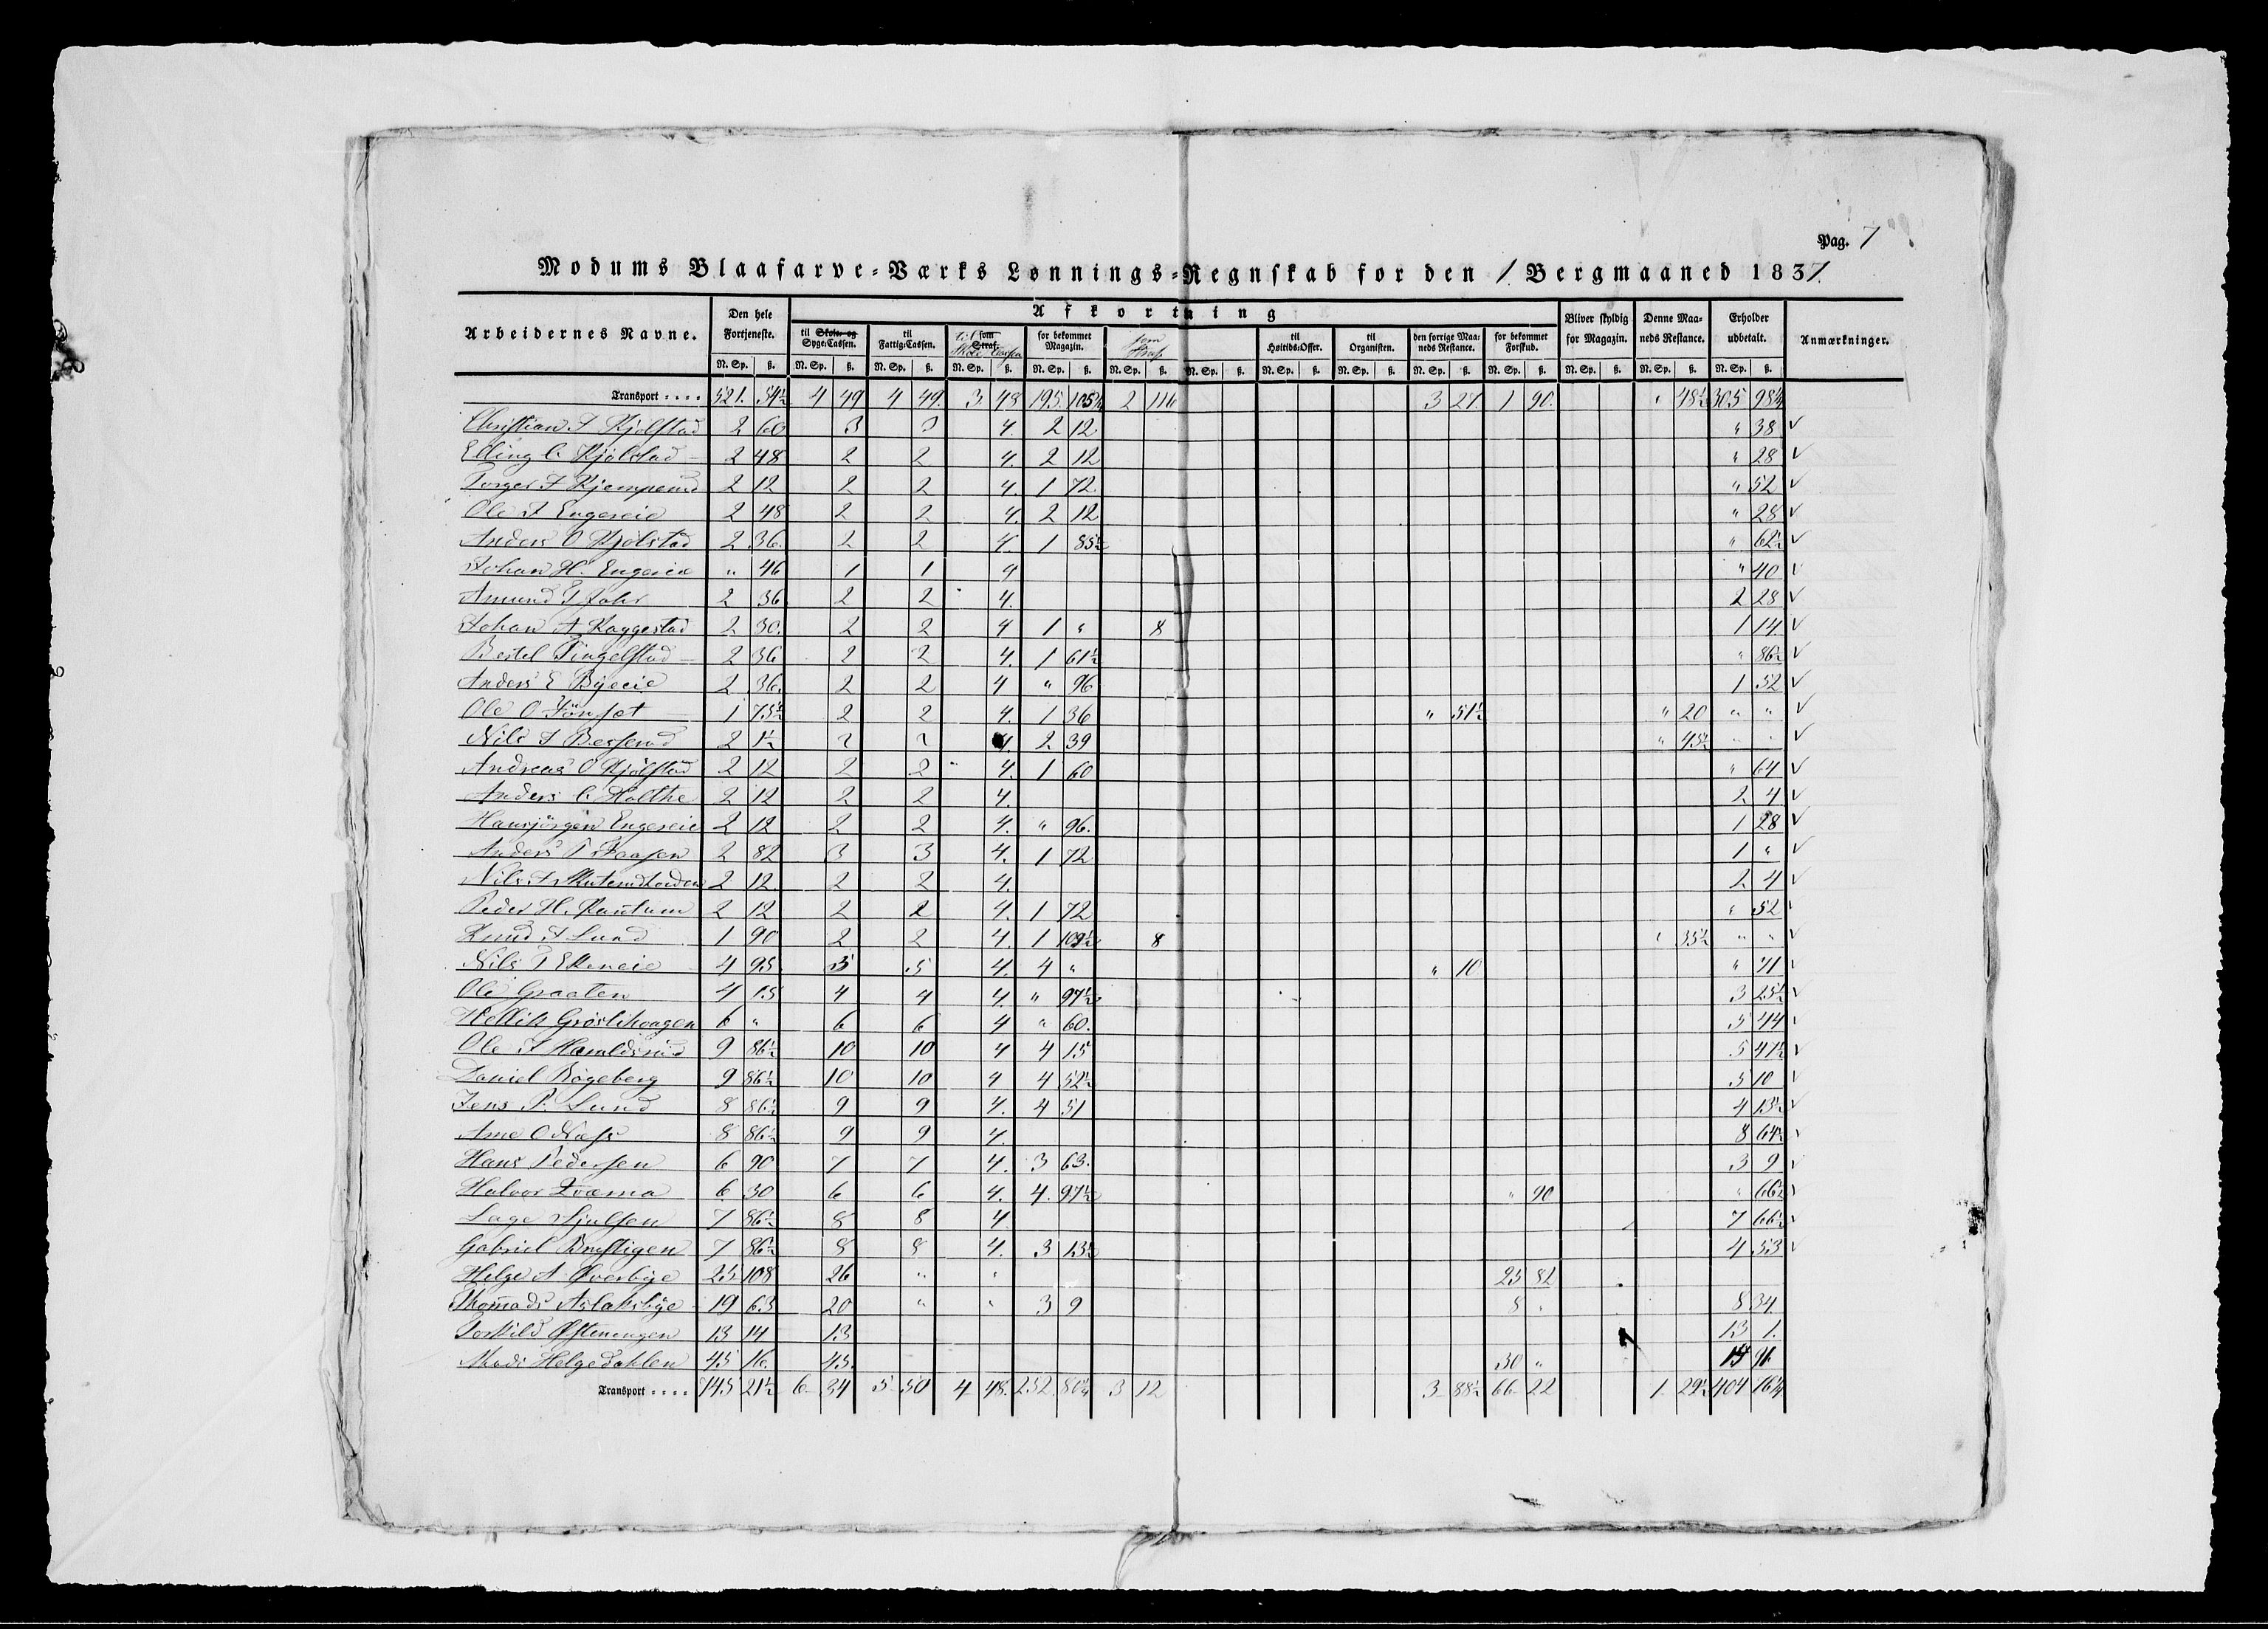 Pag. 7
Modums Blaafarve-Værks Lønnings-Regnskab for den 1. Bergmaaned 1837.
Arbeidernes Navne. Den hele Fortjeneste. Afkortning Bliver skyldig for Magazin. Denne Maaneds Restance. Erholder udbetalt. Anmærkninger.
til Skole- og Syge-Cassen. til Fattig-Cassen. til som Straf. Skole Cassen for bekommet Magazin. som Straf til Høitids-Offer. til Organisten. den forrige Maaneds Restance. for bekommet Forskud.
N. Sp. ß. N. Sp. ß. N. Sp. ß. N. Sp. ß. N. Sp. ß. N. Sp. ß. N. Sp. ß. N. Sp. ß. N. Sp. ß. N. Sp. ß. N. Sp. ß. N. Sp. ß. N. Sp. ß. N. Sp. ß.
Transport .... 521. 54½ 4 49 4 49. 3 48 195. 105¼ 2 116 3 27. 1 90. " 48½ 305 98¼
Christian Kjølstad 2 60 3 3 4. 2 12 " 38 ✓
Elling C. Kjølstad 2 48 2 2 4. 2 12 " 28 ✓
Torger 2 12 2 2 4. 1 72. " 52 ✓
Ole Engereie 2 48 2 2 4. 2 12 " 28 ✓
Anders O Kjølstad 2 36. 2 2 4. 1 85½ " 62½ ✓
Johan H. Engereie " 46 1 1 4 " 40 ✓
Amund 2 36 2 2 4. 2 28 ✓
Johan A Kaggestad 2 30. 2 2 4 1 " 8 1 14 ✓
Bertel Tingelstad 2 36 2 2 4. 1 61½ " 86½ ✓
Anders E Byeeie 2 36. 2 2 4 " 96 1 52 ✓
Ole O 1 75½ 2 2 4. 1 36 " 51½ " 20 " " ✓
Nils 2 1½ 2 2 4. 2 39 " 45½ " " ✓
Andreas O Kjølstad 2 12 2 2 4. 1 60 " 64 ✓
Anders C. Holthe 2 12 2 2 4. 2 4 ✓
Hansjörgen Engereie 2 12 2 2 4. " 96. 1 28 ✓
Anders 2 82 3 3 4. 1 72 1 " ✓
Nils 2 12 2 2 4. 2 4 ✓
Peder H. 2 12 2 2 4. 1 72 " 52 ✓
Knud A Lund 1 90 2 2 4. 1 109½ 8 " 35½ " " ✓
Nils 4 95 5 5 4. 4 " " 10 " 71 ✓
Ole Graaten 4 15 4 4 4. " 97½ 3 25½ ✓
Hellik Grøslihougen 6 " 6 6 4 " 60. 5 44 ✓
Ole Haraldsrud 9 86½ 10 10 4 4 15 5 47½ ✓
Daniel Bøgeberg 9 86½ 10 10 4 4 52½ 5 10 ✓
Jens P. Lund 8 86½ 9 9 4. 4 51 4 13½ ✓
Arne O Næss 8 86½ 9 9 4. 8 64½ ✓
Hans Pedersen 6 90 7 7 4. 3 63. 3 9 ✓
Halvor 6 30 6 6 4. 4. 97½ " 90 " 66½ ✓
Lage 7 86½ 8 8 4 7 66½ ✓
Gabriel 7 86½ 8 8 4. 3 13½ 4 53 ✓
Helge A Øverbye 25 108 26 " " 25 82
Thomads Aslaksbye 19 63 20 " " 3 9 8 " 8 34
Torkild 13 14 13 13 1.
Helgedahlen 45 16. 45. 30 " 14 91
Transport .... 745 21½ 6 34 5 50 4 48. 252. 80¼ 3 12 3 88½ 66 22 1 29½ 404 16¼